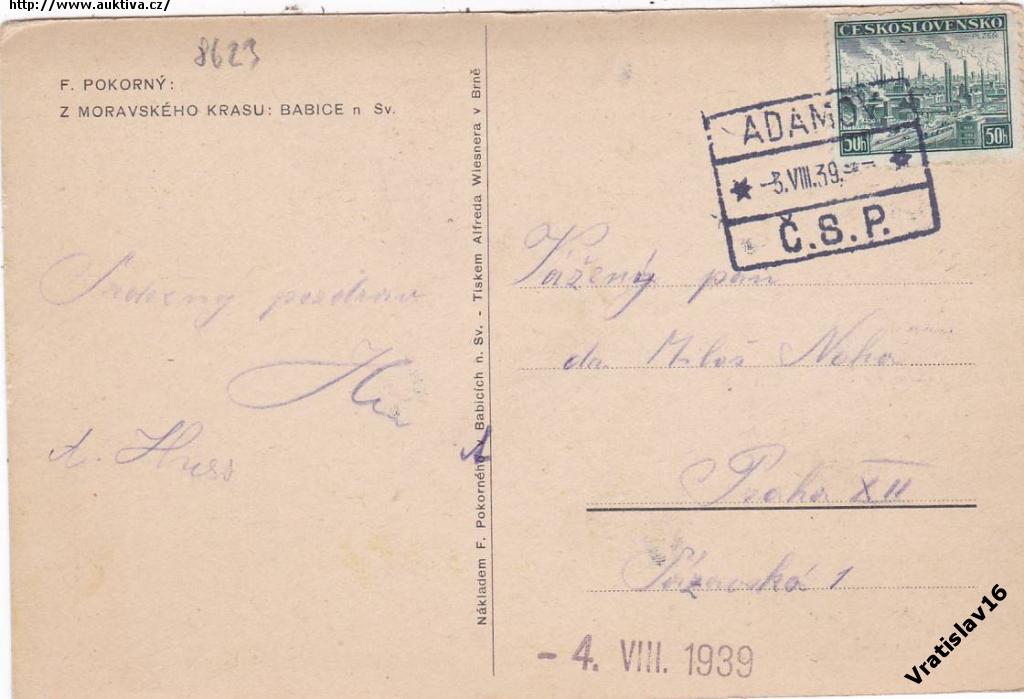 http://www.auktiva.cz/
8623
F. POKORNÝ:
Z MORAVSKÉHO KRASU: BABICE n Sv.
Srdečný pozdrav
A. Huss
Nákladem F. Pokorného v Babicích n. Sv. - Tiskem Alfreda Wiesnera v Brně
ČESKOSLOVENSKO
PLZEŇ
50h 50h
ADAMOV
-3.VIII.39.
Č.S.P.
Vážený pán
dr. Miloš Noha
Praha XII
Sázavská 1
- 4. VIII. 1939
Vratislav16